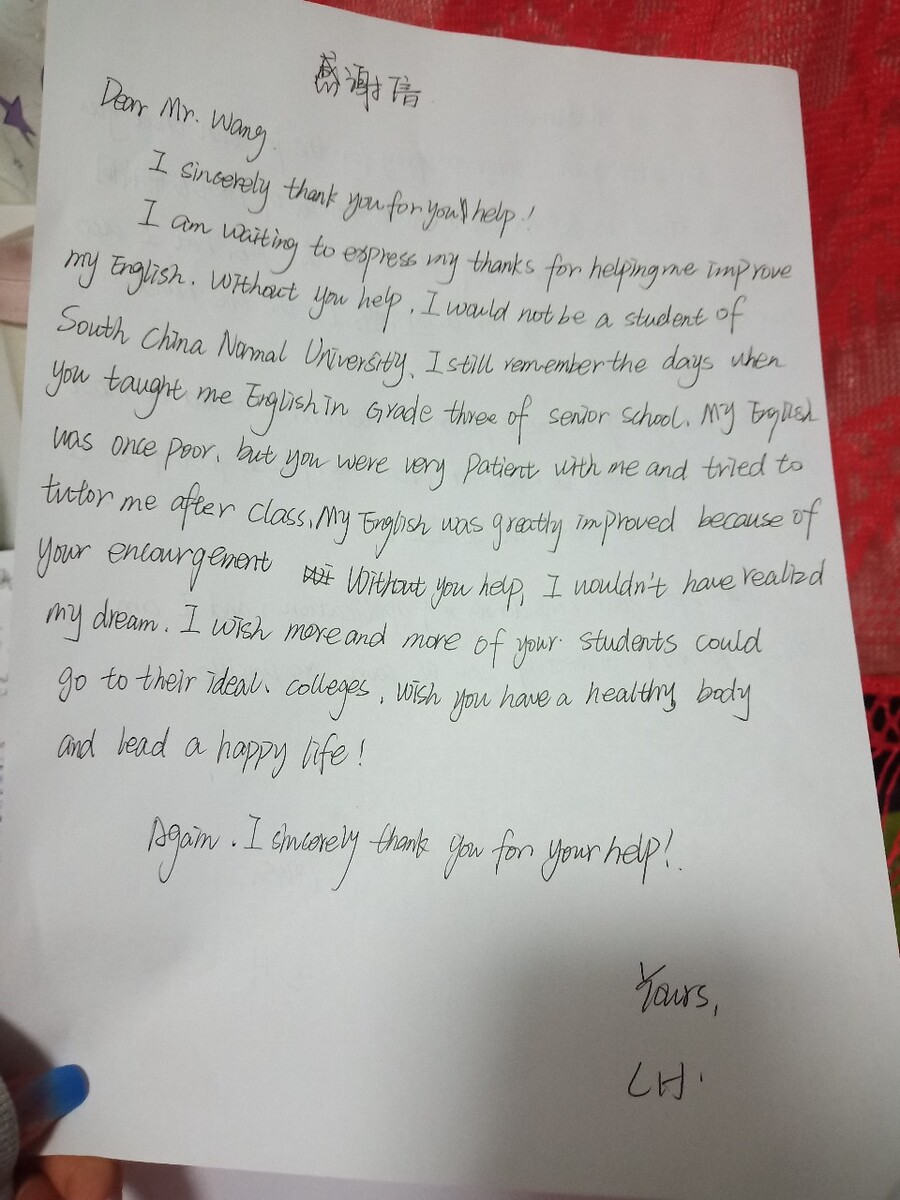 感谢信
Dear Mr. Wang
I sincerely thank you for your help!
I am waiting to express my thanks for helping me improve
my English. Without you help, I would not be a student of
South China Normal University. I still remember the days when
you taught me English in Grade three of senior school. My English
was once poor, but you were very patient with me and tried to
tutor me after class. My English was greatly improved because of
your encourgement Without you help, I wouldn't have realizd
my dream. I wish more and more of your students could
go to their ideal. colleges. wish you have a healthy body
and lead a happy life!
Again. I sincerely thank you for your help!
Yours,
LH.